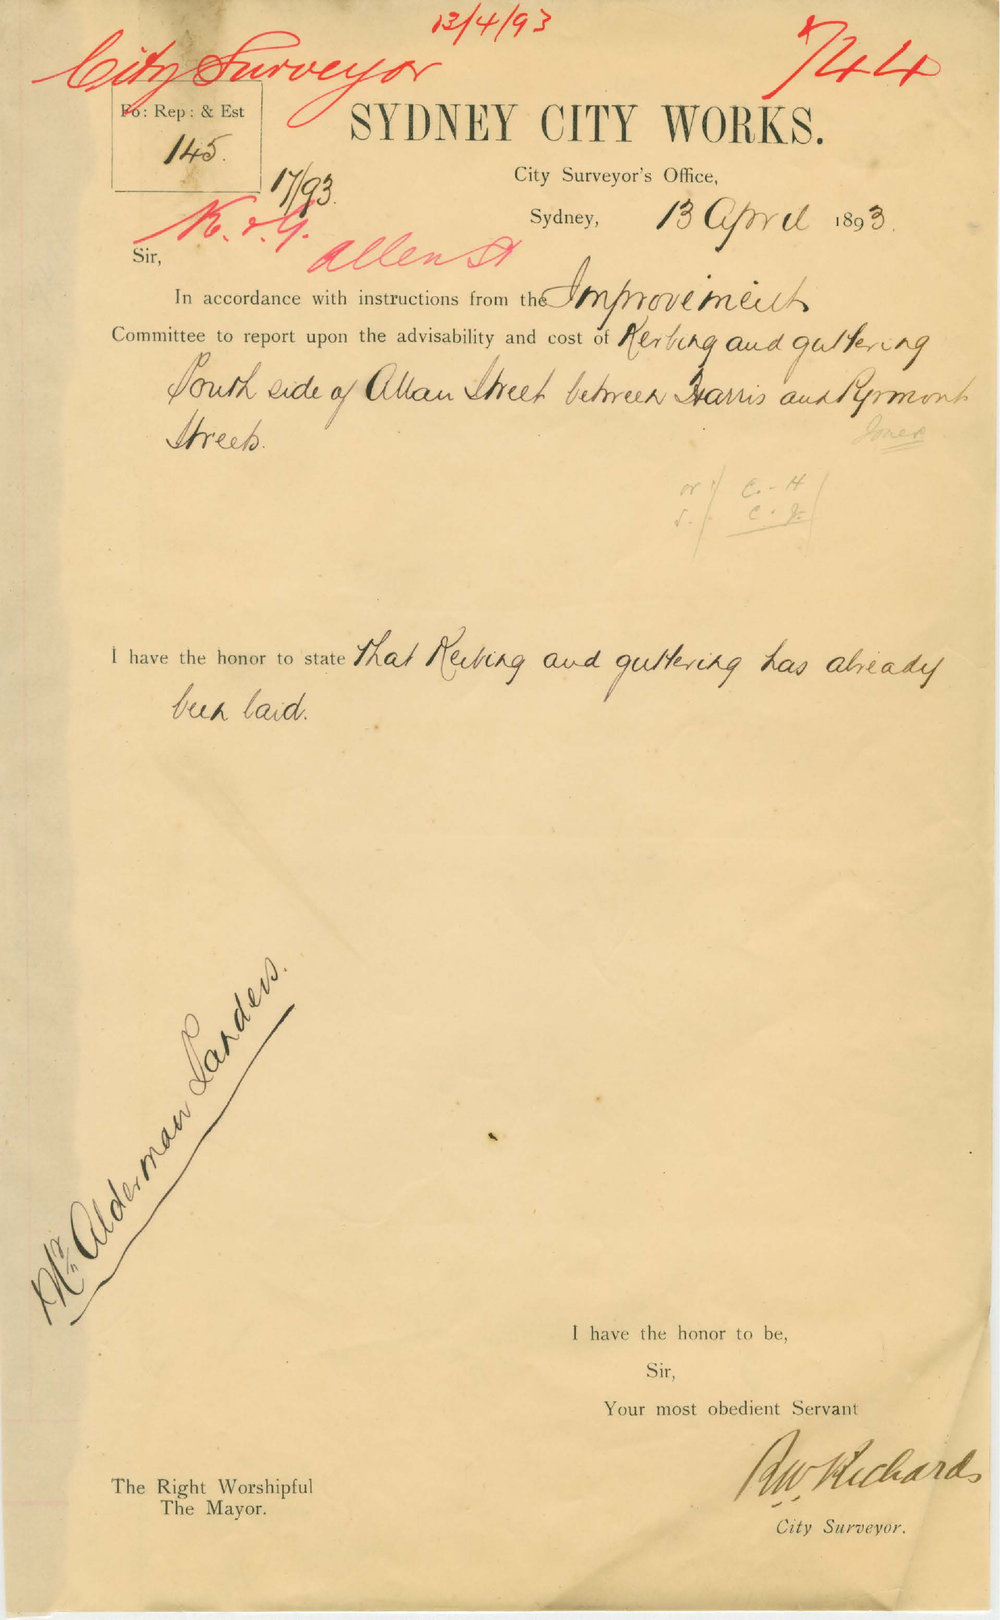 13/4/93
City Surveyor
744
Po: Rep: & Est
145.
17/93.
SYDNEY CITY WORKS.
City Surveyor's Office,
Sydney, 13 April 1893.
K. & G.
Allen St
Sir,
In accordance with instructions from the Improvement
Committee to report upon the advisability and cost of Kerbing and guttering
South side of Allan Street between Harris and Pyrmont
Streets.
Jones
I have the honor to state that Kerbing and guttering has already
been laid.
Mr Alderman Landers.
I have the honor to be,
Sir,
Your most obedient Servant
RW Richards
City Surveyor.
The Right Worshipful
The Mayor.